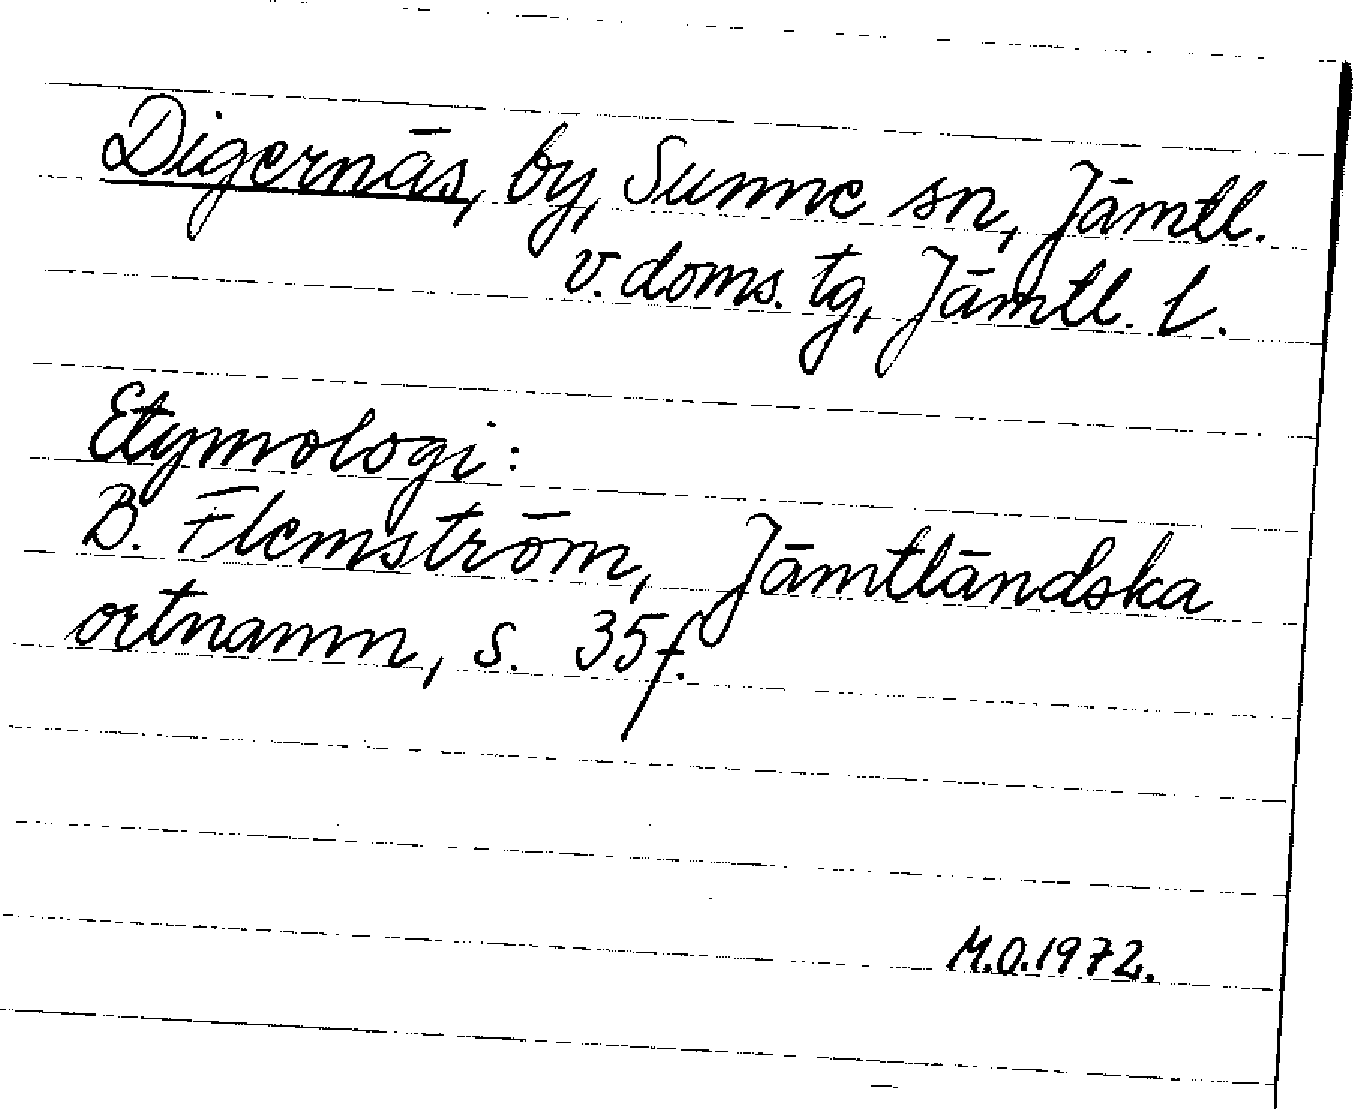 Digernäs, by, Sunne sn, Jämtl.
v. doms. tg, Jämtl. l.
Etymologi:
B. Flemström, Jämtländska
ortnamn, s. 35f.
M.O.1972.